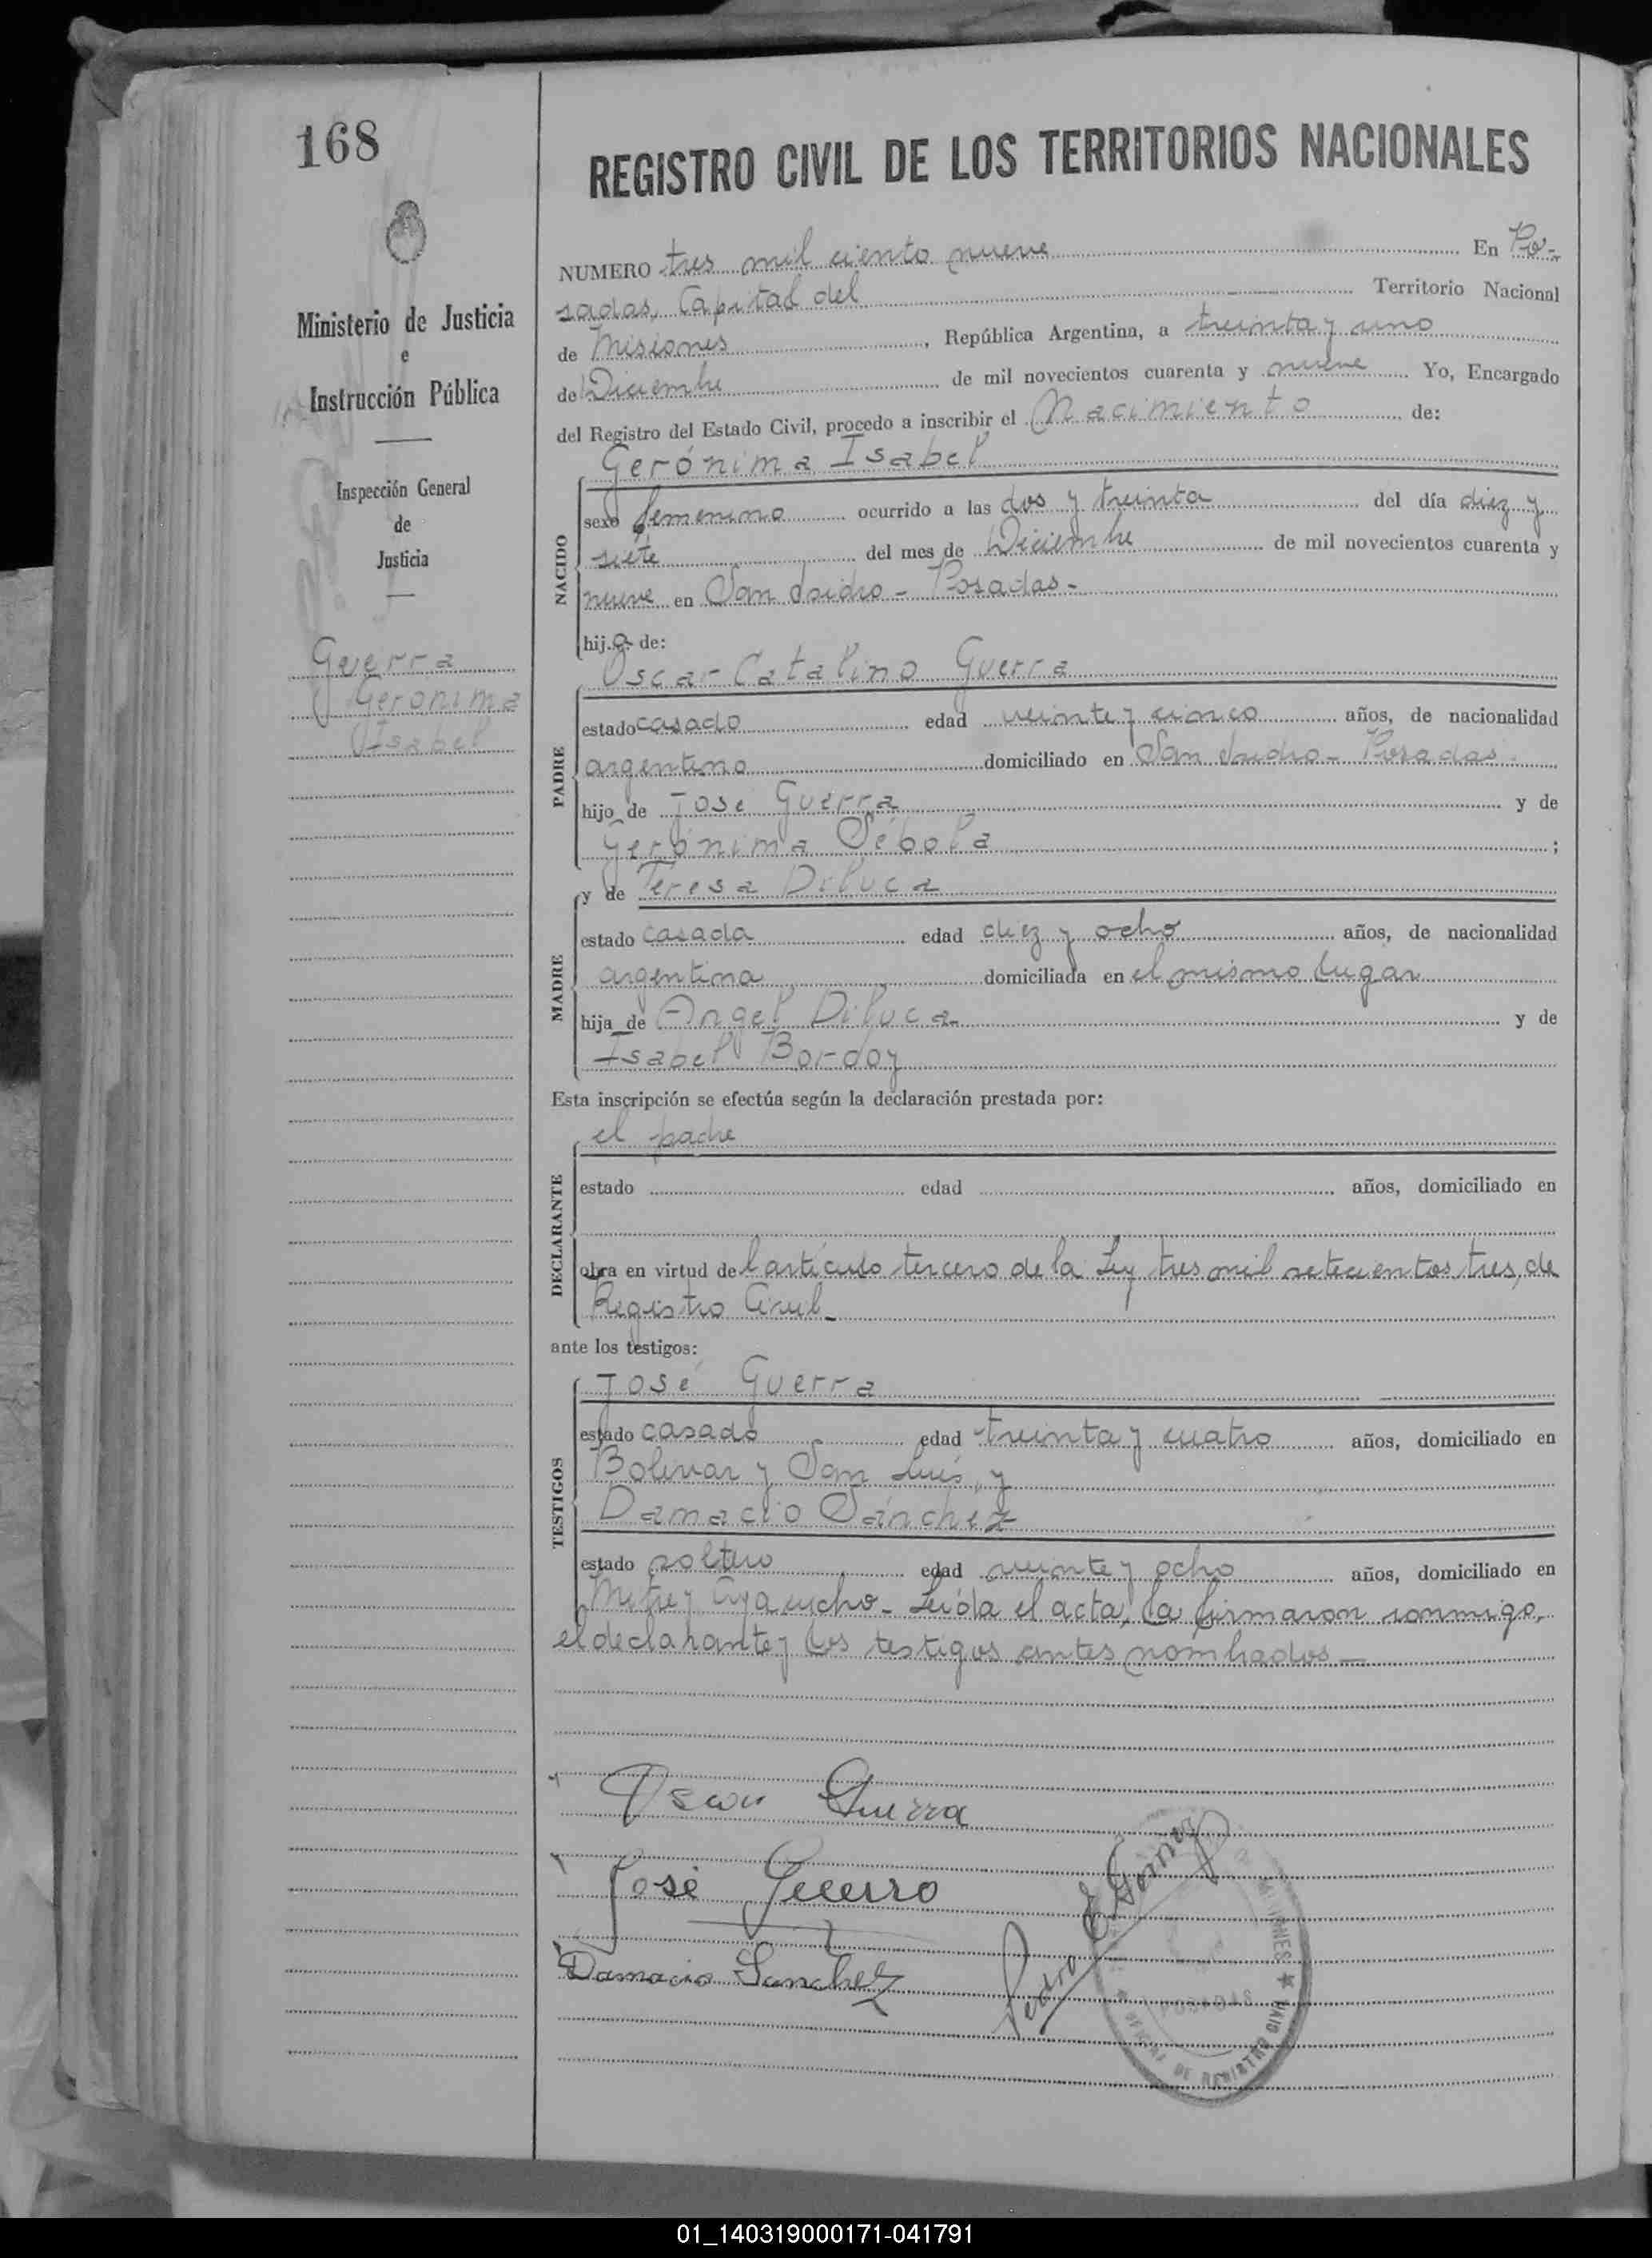 168
Ministerio de Justicia
e
Instrucción Pública
Inspección General
de
Justicia
Guerra
Gerónima
Isabel
REGISTRO CIVIL DE LOS TERRITORIOS NACIONALES
NUMERO tres mil ciento nueve En Po-
sadas, Capital del Territorio Nacional
de Misiones, República Argentina, a treinta y uno
de Diciembre de mil novecientos cuarenta y nueve Yo, Encargado
del Registro del Estado Civil, procedo a inscribir el Nacimiento de:
Gerónima Isabel
NACIDO
sexo femenino ocurrido a las dos y treinta del día diez y
siete del mes de Diciembre de mil novecientos cuarenta y
nueve en San Isidro - Posadas -
hija de:
Oscar Catalino Guerra
PADRE
estado casado edad veinte y cinco años, de nacionalidad
argentino domiciliado en San Isidro - Posadas.
hijo de José Guerra y de
Gerónima Sébola;
y de Teresa Diluca
MADRE
estado casada edad diez y ocho años, de nacionalidad
argentina domiciliada en el mismo lugar
hija de Angel Diluca y de
Isabel Bordoy
Esta inscripción se efectúa según la declaración prestada por:
el padre
DECLARANTE
estado edad años, domiciliado en
obra en virtud del artículo tercero de la Ley tres mil setecientos tres, de
Registro Civil.-
ante los testigos:
José Guerra
TESTIGOS
estado casado edad treinta y cuatro años, domiciliado en
Bolivar y San Luis, y
Damacio Sánchez
estado soltero edad veinte y ocho años, domiciliado en
Mitre y Ayacucho - Leída el acta, la firmaron conmigo,
el declarante y los testigos antes nombrados -
Oscar Guerra
José Guerra
Damacio Sanchez
Pedro E. Gómez
MISIONES ★
POSADAS
OFICINA DE REGISTRO CIVIL
01_140319000171-041791